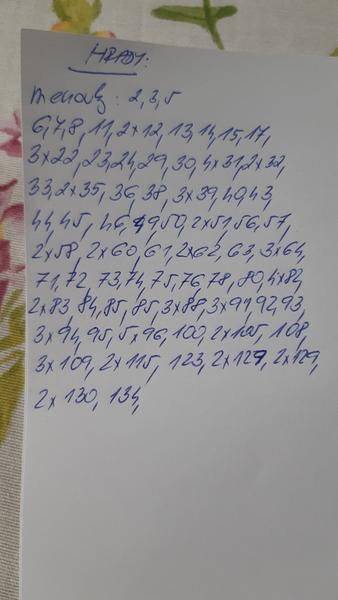 HRADY:
menovky : 2,3,5
6,7,8, 11, 2x12, 13,14,15,17,
3x22, 23,24,29, 30, 4x31, 2x32,
33, 2x35, 36, 38, 3x39, 40,43,
44,45, 46, 49,50, 2x51,56,57,
2x58, 2x60, 61, 2x62, 63, 3x64,
71,72, 73,74,75,76,78, 80, 4x82,
2x83, 84, 85, 85, 3x88, 3x91,92,93,
3x94, 95, 5x96, 100, 2x105, 108,
3x109, 2x115, 123, 2x127, 2x129,
2x130, 134,